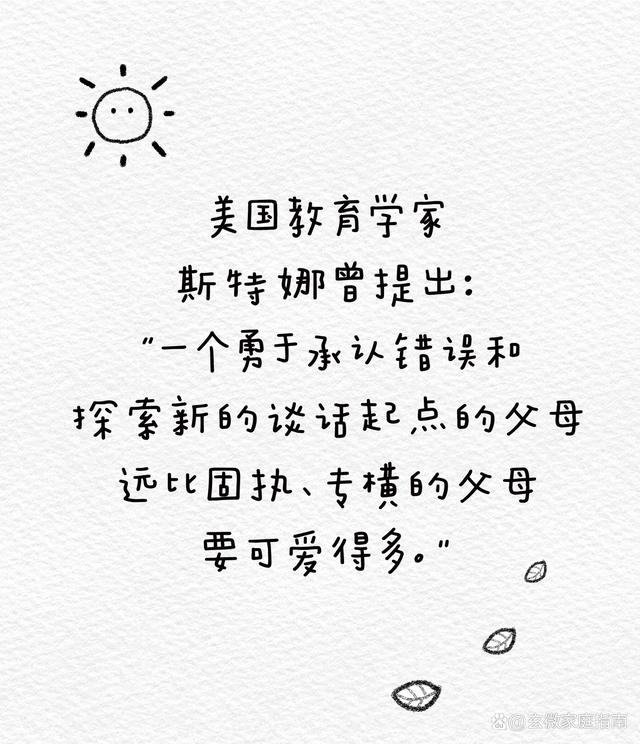 美国教育学家
斯特娜曾提出：
“一个勇于承认错误和
探索新的谈话起点的父母
远比固执、专横的父母
要可爱得多。”
@玄微家庭指南